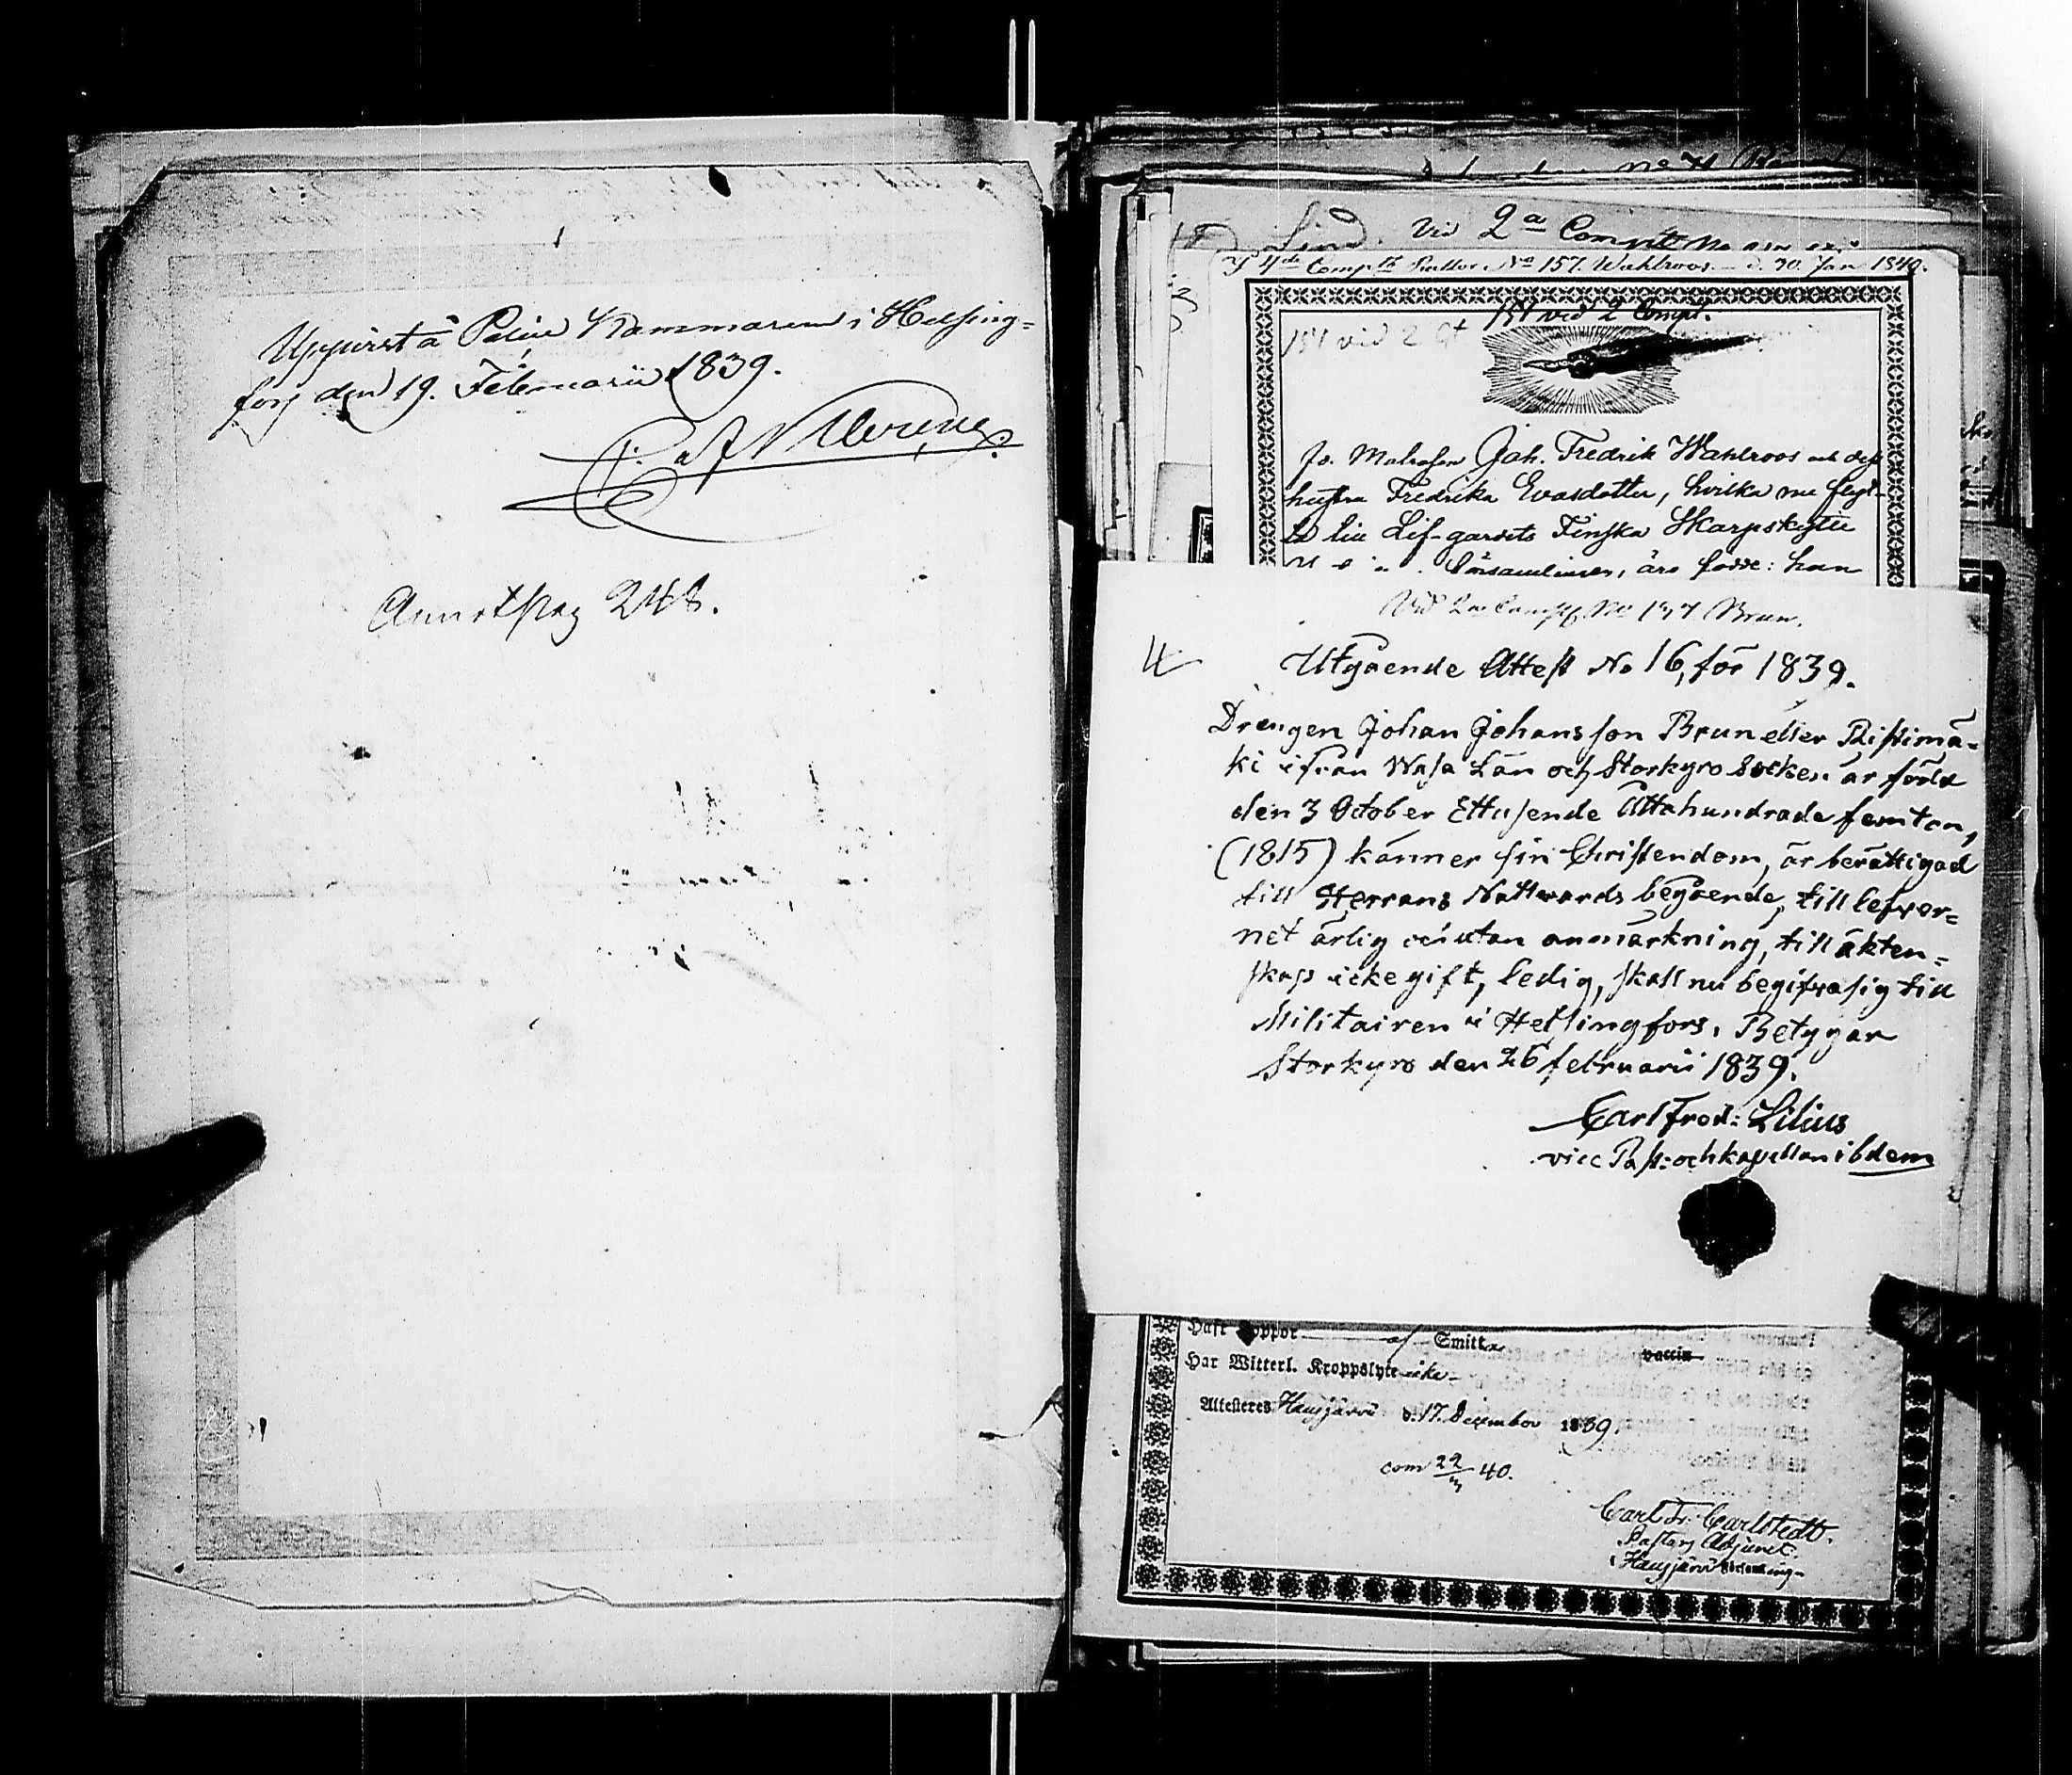 Uppvist å Police Kammaren i Helsing=
fors den 19. Februarii 1839.
Annot pag 248.
Lind. Vid 2a Comp
4de Comp No 157. Wahlroos d. 30. Jan 1840.
151 vid 2 Compt.
151 vid 2 Ct
Joh. Fredrik Wahlroos och dess
hustru Fredrika Evasdotter, hvilka nu flyt-
ta till Lif-gardets Finska Skarpskytte
församlingen, äro födde: han
Vid 2a Comp No 157 Brun.
4
Utgående Attest No 16, för 1839.
Drengen Johan Johansson Brun eller Ristimä-
ki ifrån Wasa Län och Storkyro Socken är född
den 3 October Ettusende Åttahundrade femton,
(1815) känner sin Christendom, är berättigad
till Herrans Nattwards begående, till lefver=
net ärlig och utan anmärkning, till äkten=
skap icke gift, ledig, skall nu begifva sig till
Militairen i Helsingfors. Betygar
Storkyro den 26 februarii 1839.
Carl Fred: Lilius
vice Past: och kapellan ibdem
Haft Koppor af Smitta vaccin
Har Witterl. Kroppslyte icke
Attesteres Hausjärvi d. 17. December 1839.
com 22/3 40.
Carl Fr. Carlstedt.
Pastors Adjunct.
i Hausjärvi Församling